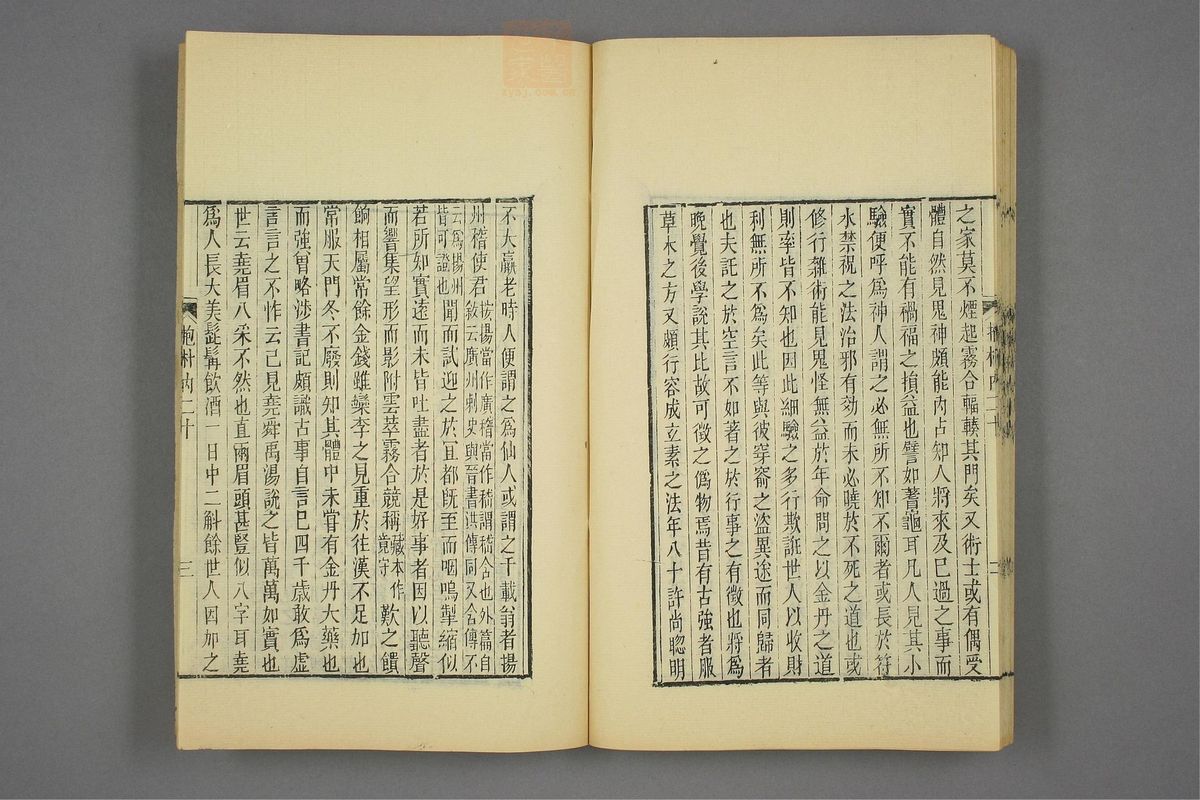 之家莫不煙起霧合輻輳其門矣又術士或有偶受
體自然見鬼神頗能內占知人將來及已過之事而
實不能有禍福之損益也譬如蓍龜耳凡人見其小
驗便呼爲神人謂之必無所不知不爾者或長於符
水禁祝之法治邪有効而未必曉於不死之道也或
修行雜術能見鬼怪無益於年命問之以金丹之道
則率皆不知也因此細驗之多行欺誑世人以收財
利無所不爲矣此等與彼穿窬之盜異途而同歸者
也夫託之於空言不如著之於行事之有徵也將爲
晚覺後學說其比故可徵之僞物焉昔有古強者服
草木之方又頗行容成玄素之法年八十許尚聰明
抱朴內二十
二
不大羸老時人便謂之爲仙人或謂之千載翁者揚
州稽使君按揚當作廣稽當作嵇謂嵇含也外篇自敘云廣州刺史與晉書洪傳同又含傳不
云爲揚州皆可證也聞而試迎之於宜都旣至而咽嗚掣縮似
若所知實遠而未皆吐盡者於是好事者因以聽聲
而響集望形而影附雲萃霧合競稱藏本作竟守歎之饋
餉相屬常餘金錢雖欒李之見重於往漢不足加也
常服天門冬不廢則知其體中未嘗有金丹大藥也
而強曾略涉書記頗識古事自言已四千歲敢爲虛
言言之不怍云己見堯舜禹湯說之皆萬萬如實也
世云堯眉八采不然也直兩眉頭甚豎似八字耳堯
爲人長大美髭髯飲酒一日中二斛餘世人因加之
抱朴內二十
三
zysj.com.cn